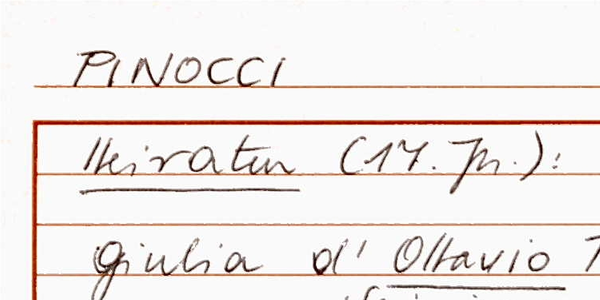 PINOCCI
Heiraten (17. Jh.):
Giulia d' Ottavio